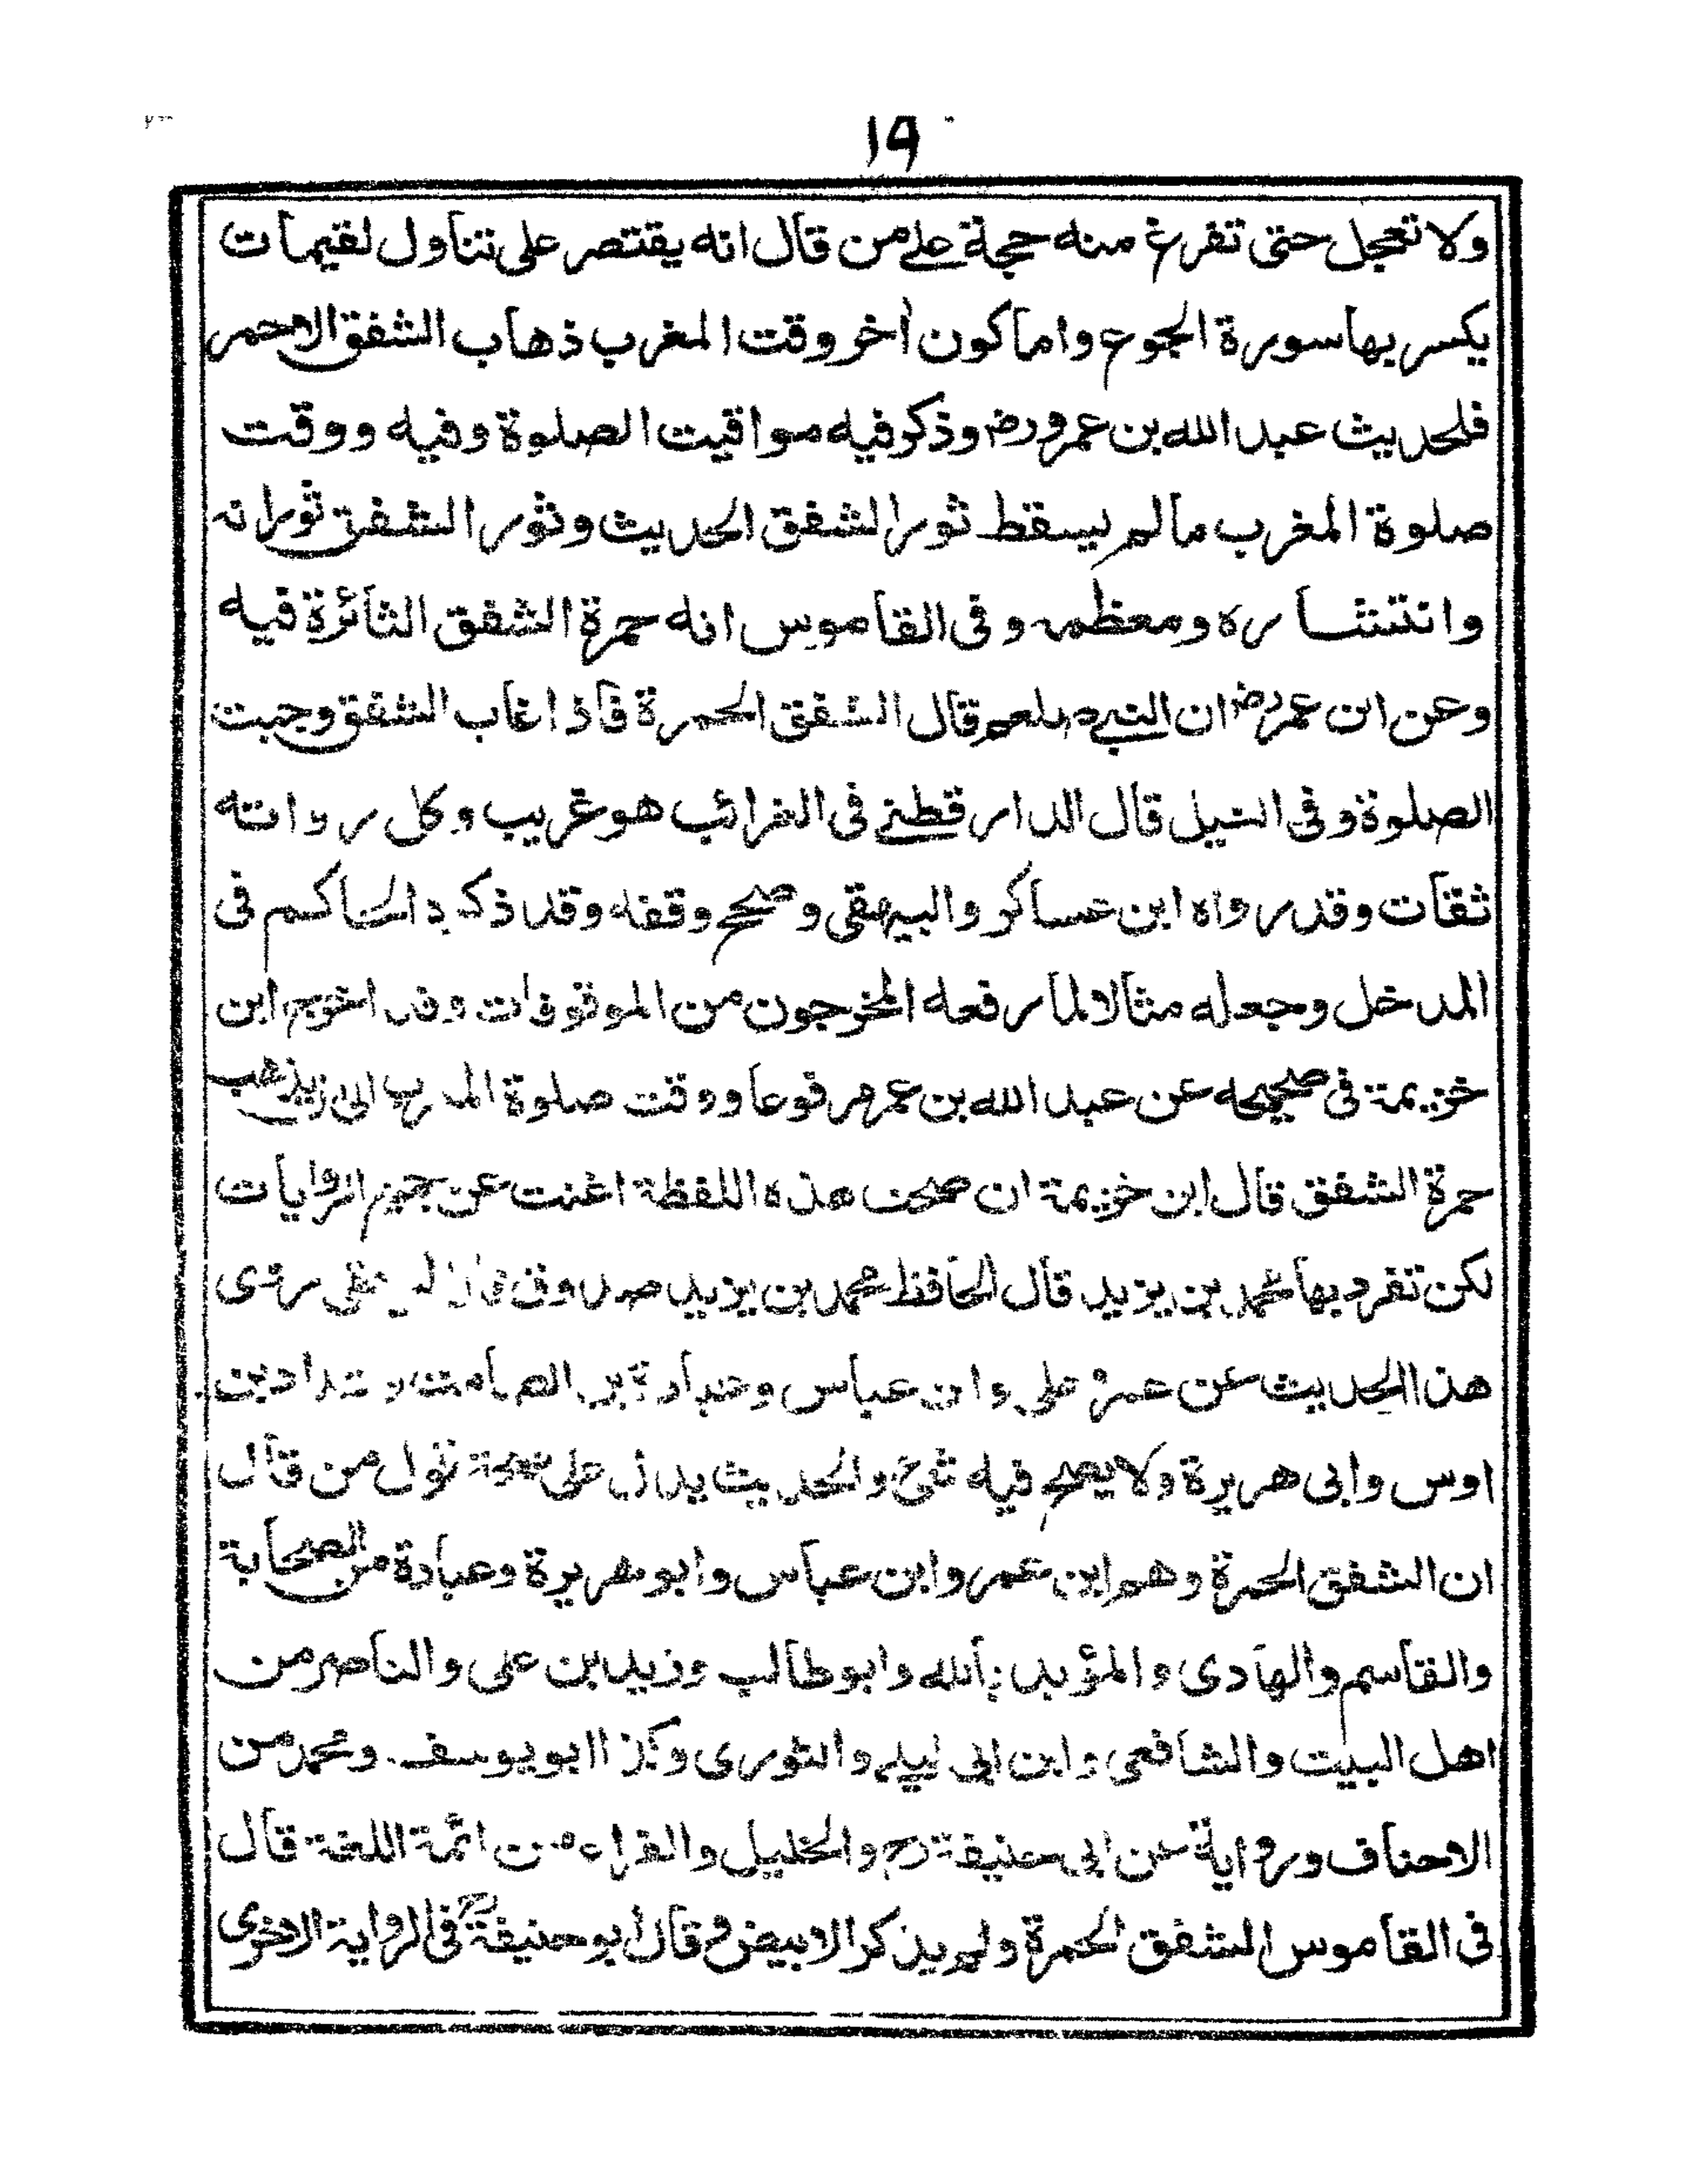 ١٩
ولا تعجل حتى تفرغ منه حجة على من قال انه يقتصر على تناول لقيمات
يكسر بها سورة الجوع واما كون أخر وقت المغرب ذهاب الشفق الاحمر
فلحديث عبد الله بن عمرو رض وذكر فيه مواقيت الصلوة وفيه ووقت
صلوة المغرب ما لم يسقط ثور الشفق الحديث وثور الشفق ثورانه
وانتشاره ومعظمه وفى القاموس انه حمرة الشفق الثائرة فيه
وعن ابن عمر رض ان النبي صلعم قال الشفق الحمرة فاذا غاب الشفق وجبت
الصلوة وفى النيل قال الدارقطنے فى الغرائب هو غريب وكل رواته
ثقات وقد رواه ابن عساكر والبيهقى وصحح وقفه وقد ذكره الحاكم فى
المدخل وجعله مثالا لما رفعه المخرجون من الموقوفات وقد اخرج ابن
خزيمة فى صحيحه عن عبد الله بن عمر مرفوعا ووقت صلوة المغرب الى ان يذهب
حمرة الشفق قال ابن خزيمة ان صحت هذه اللفظة اغنت عن جميع الروايات
لكن تفرد بها محمد بن يزيد قال الحافظ محمد بن يزيد صدوق قال البيهقى روى
هذا الحديث عن عمر وعلى وابن عباس وعبادة بن الصامت وشداد بن
اوس وابى هريرة ولا يصح فيه شئ والحديث يدل على صحة قول من قال
ان الشفق الحمرة وهم ابن عمر وابن عباس وابو هريرة وعبادة من الصحابة
والقاسم والهادى والمؤيد بالله وابو طالب وزيد بن على والناصر من
اهل البيت والشافعى وابن ابى ليلے والثورى وكذا ابو يوسف ومحمد من
الاحناف ورواية عن ابى حنيفة رح والخليل والفراء من ائمة اللغة قال
فى القاموس الشفق الحمرة ولم يذكر الابيض وقال أبو حنيفة رح فى الرواية الاخرى